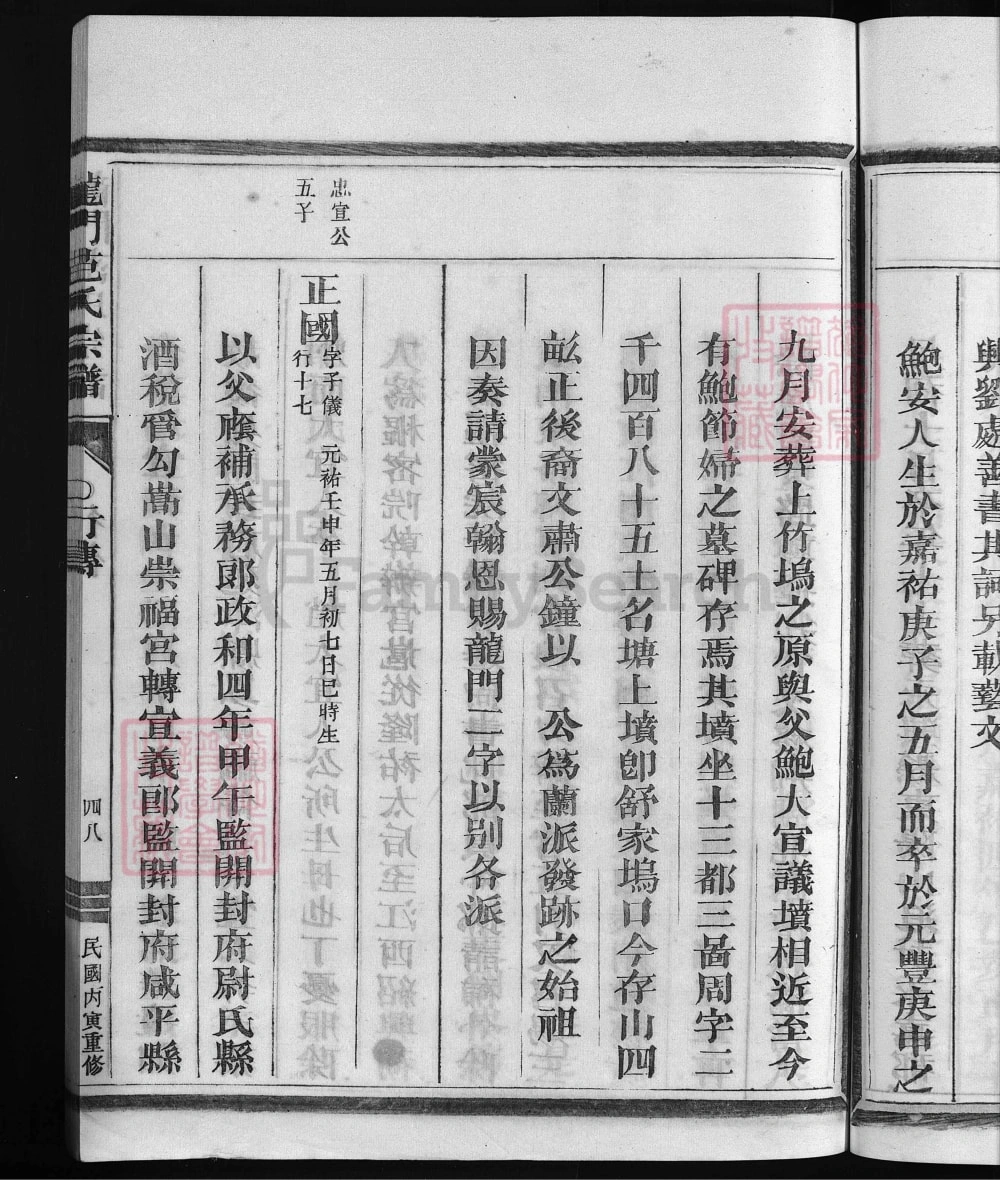 興劉處善書其詞另載藝文
鮑安人生於嘉祐庚子之五月而卒於元豐庚申之
九月安葬上竹塢之原與父鮑大宣議墳相近至今
有鮑節婦之墓碑存焉其墳坐十三都三啚周字二
千四百八十五土名塘上墳卽舒家塢口今存山四
畝正後裔文肅公鐘以 公爲蘭派發跡之始祖
因奏請蒙宸翰恩賜龍門二字以别各派
忠宣公
五子
正國
字子儀 元祐壬申年五月初七日巳時生
行十七
以父廕補承務郎政和四年甲午監開封府尉氏縣
酒稅晉勾嵩山崇福宮轉宣義郎監開封府咸平縣
龍門范氏宗譜
行傳
四八
民國丙寅重修
FamilySearch